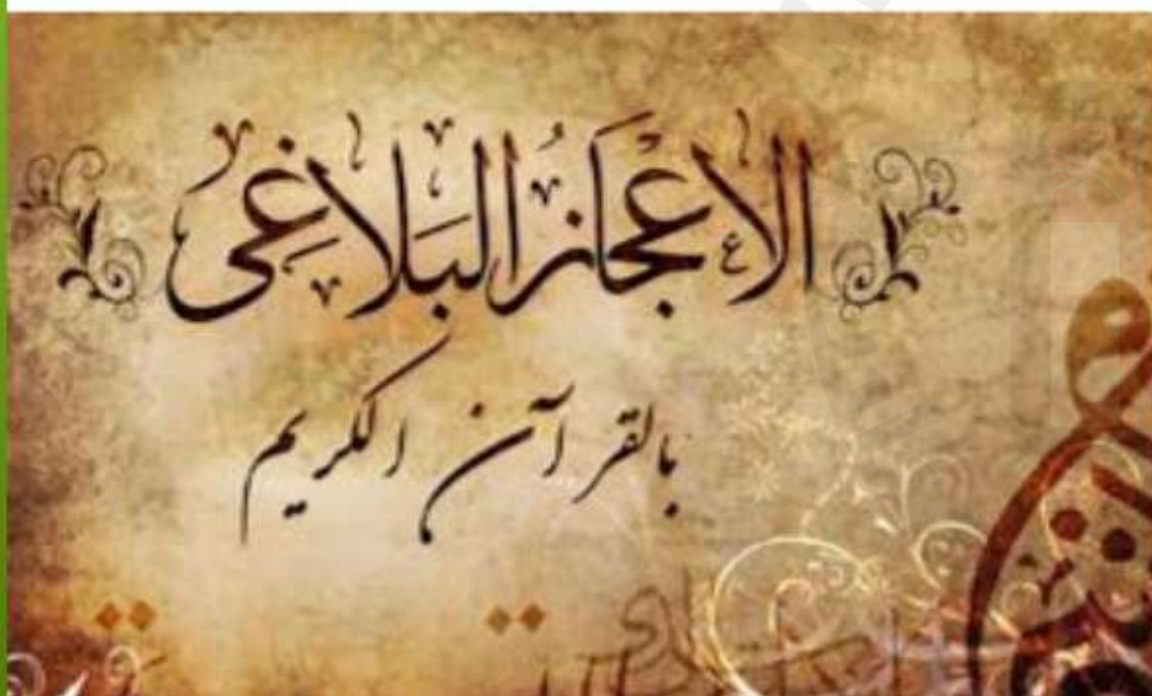 الإعجاز البلاغي
بالقرآن الكريم